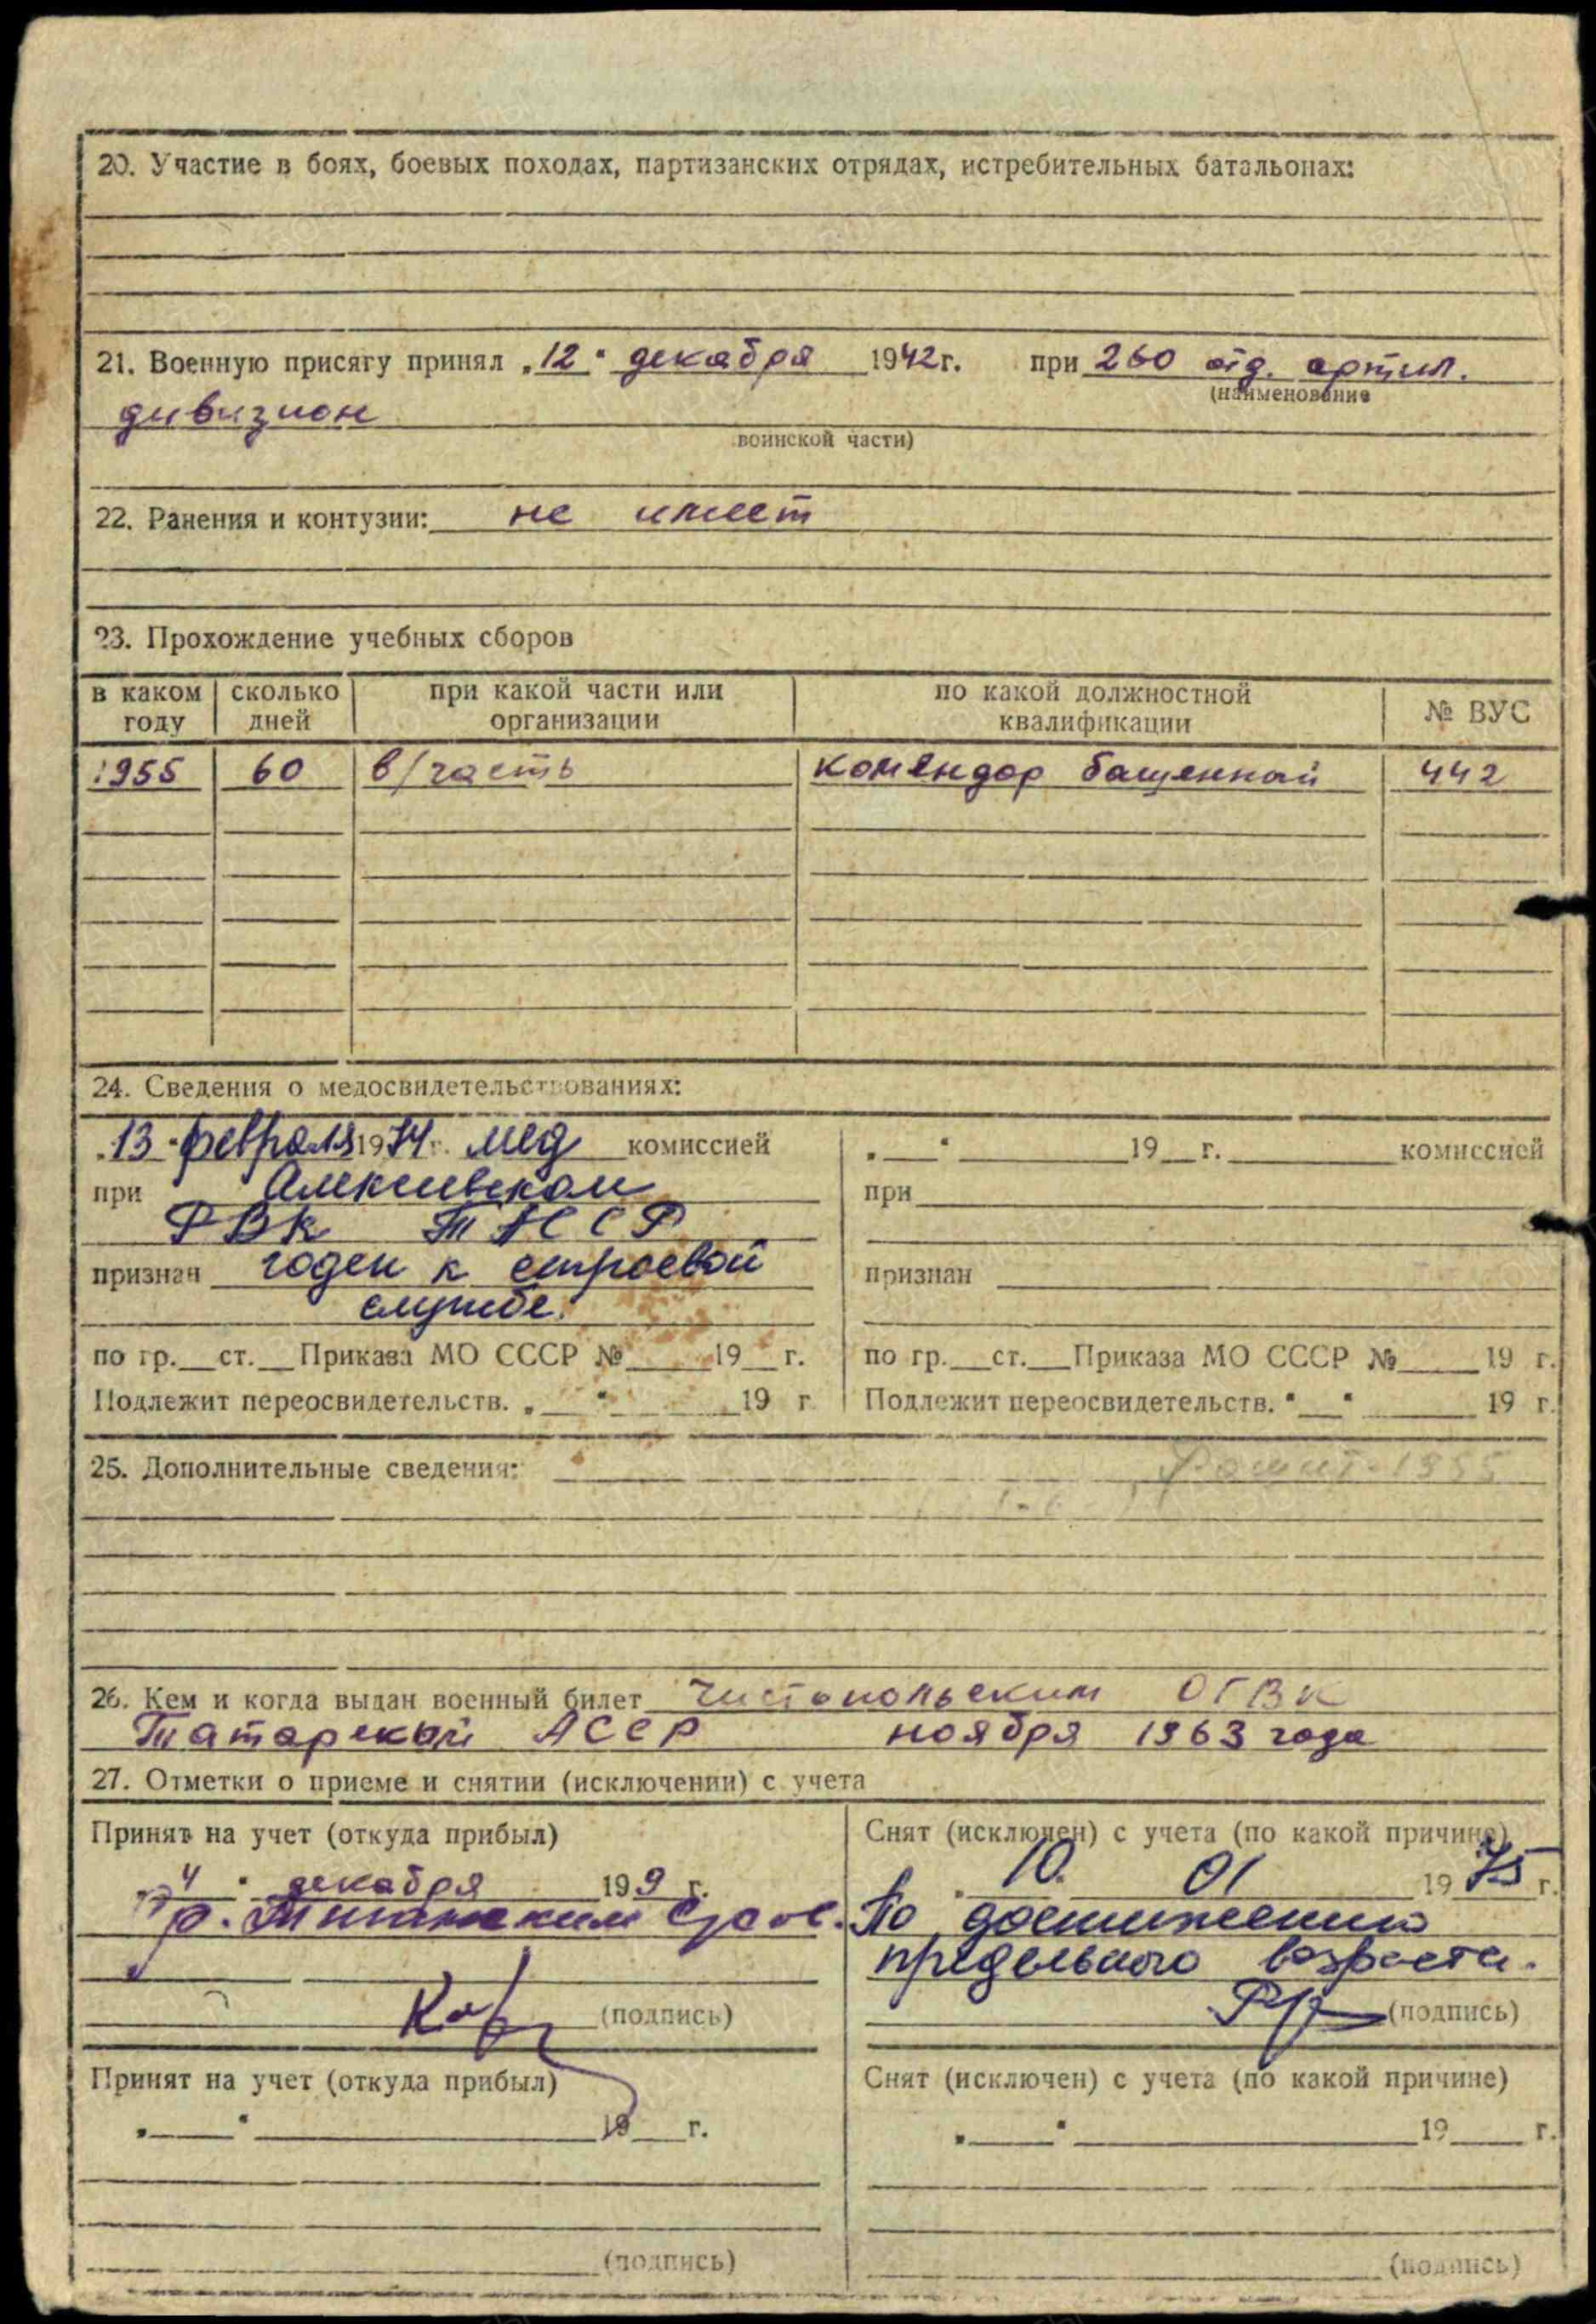 20. Участие в боях, боевых походах, партизанских отрядах, истребительных батальонах:
21. Военную присягу принял „12“ декабря 1942 г. при 260 отд. артил.
(наименование
дивизион
воинской части)
22. Ранения и контузии: не имеет
23. Прохождение учебных сборов
в каком году | сколько дней | при какой части или организации | по какой должностной квалификации | № ВУС
1955 | 60 | в/часть | комендор башенный | 442
24. Сведения о медосвидетельствованиях:
„13“ февраля 1974 г. мед комиссией
при Алексеевском
РВК ТАССР
признан годен к строевой
службе.
по гр.___ст.___Приказа МО СССР №____19__г.
Подлежит переосвидетельств. „___“______19 г.
„___“________19__г.________комиссией
при
признан
по гр.___ст.___Приказа МО СССР №____19 г.
Подлежит переосвидетельств. "___"______19 г.
25. Дополнительные сведения:
26. Кем и когда выдан военный билет Чистопольским ОГВК
Татарской АССР ноября 1963 года
27. Отметки о приеме и снятии (исключении) с учета
Принят на учет (откуда прибыл)
декабря 199 г.
(подпись)
Снят (исключен) с учета (по какой причине)
10. 01 1975 г.
По достижению
предельного возраста.
(подпись)
Принят на учет (откуда прибыл)
„___“________19__г.
(подпись)
Снят (исключен) с учета (по какой причине)
„___“________19__г.
(подпись)